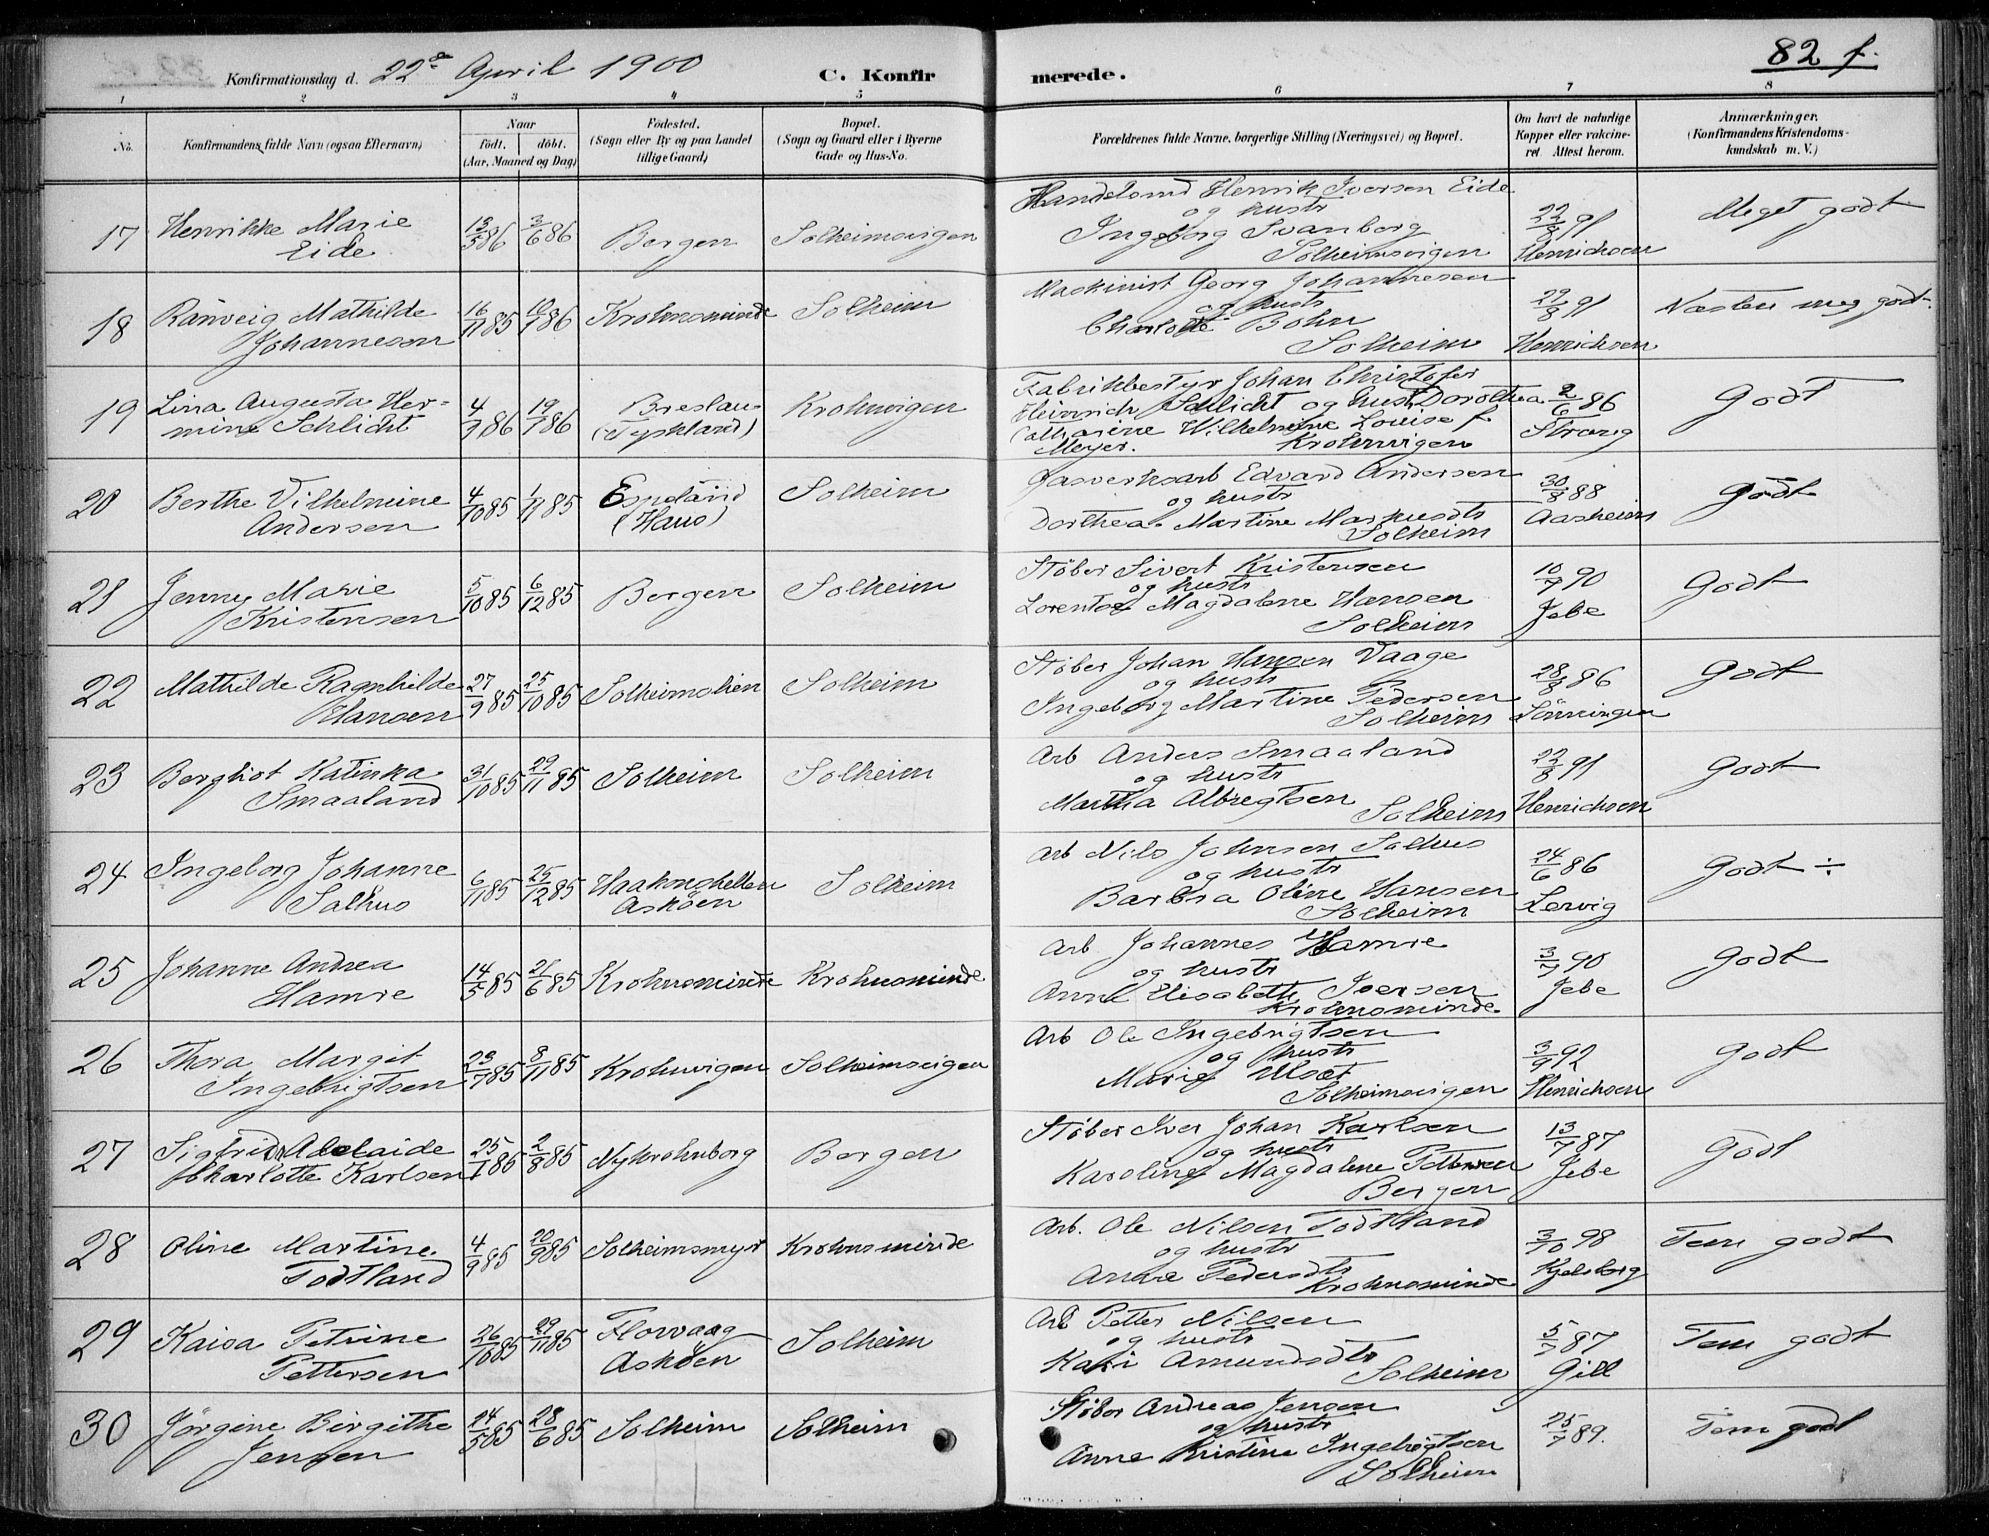 82 f.
Konfirmationsdag d. 22de April 1900 C. Konfirmerede.
1 2 3 4 5 6 7 8
No. Konfirmandens fulde Navn (ogsaa Efternavn) Naar født. døbt. (Aar, Maaned og Dag) Fødested. (Sogn eller By og paa Landet tillige Gaard) Bopæl. (Sogn og Gaard eller i Byerne Gade og Hus-No. Forældrenes fulde Navne, borgerlige Stilling (Næringsvei) og Bopæl. Om havt de naturlige Kopper eller vakcineret. Attest herom. Anmærkninger. (Konfirmandens Kristendomskundskab m. V.)
17 Henrikke Marie Eide 13/5 86 3/6 86 Bergen Solheimsvigen
Handelsmd Henrik Iversen Eide
og hustr
Ingeborg Svanberg
Solheimsvigen
22/8 91 Henrichsen Meget godt
18 Ranveig Mathilde Johannesen 16/11 85 10/1 86 Krohnsminde Solheim
Maskinist Georg Johannesen
og hustr
Charlotte Bohn
Solheim
22/8 91 Henrichsen Næsten meg godt
19 Lina Augusta Hermine Schlicht 4/1 86 19/1 86 Breslau (Tyskland) Krohnvigen
Fabrikbestyr Johan Christofer
Heinrich Schlicht og hust Dorothea
Catharine Wilhelmine Louise f
Meyer. Krohnvigen
2/6 86 Godt
20 Berthe Vilhelmine Andersen 4/10 85 1/11 85 (Haus) Solheim
Gasverksarb Edvard Andersen
og hustr
Dorthea Martine Markusdtr
Solheim
30/8 88 Aasheim Godt
21 Jenny Marie Kristensen 5/10 85 6/12 85 Bergen Solheim
Støber Sivert Kristensen
og hustr
Lorentse Magdalene Hansen
Solheim
10/7 90 Jebe Godt
22 Mathilde Ragnhilde Hansen 27/9 85 25/10 85 Solheimslien Solheim
Støber Johan Hansen Vaage
og hustr
Ingeborg Martine Pedersen
Solheim
28/8 86 Lönningen Godt
23 Bergliot Katinka Smaaland 31/10 85 29/11 85 Solheim Solheim
Arb Anders Smaaland
og hustr
Martha Albregtsen
Solheim
22/8 91 Henrichsen Godt
24 Ingeborg Johanne Salhus 6/11 85 25/12 85 Haakonshellen Askøen Solheim
Arb Nils Johnsen Salhus
og hustr
Barbra Oline Hansen
Solheim
24/6 86 Lervig Godt ÷
25 Johanne Andrea Hamre 14/5 85 21/6 85 Krohnsminde Krohnsminde
Arb. Johannes Hamre
og hustr
Anne Elisabeth Iversen
Krohnsminde
3/7 90 Jebe Godt
26 Thora Margit Ingebrigtsen 23/7 85 8/11 85 Krohnvigen Solheimsvigen
Arb Ole Ingebrigtsen
og hustr
Marie Ulset
Solheimsvigen
3/9 92 Henrichsen Godt
27 Sigfrid Adelaide Charlotte Karlsen 25/1 85 2/8 85 Nykrohnborg Bergen
Støber Iver Johan Karlsen
og hustr
Karoline Magdalene Pettersen
Bergen
13/7 87 Jebe Godt
28 Oline Martine Todtland 4/9 85 20/9 85 Solheimsmyr Krohnsminde
Arb. Ole Nilsen Todtland
og hustr
Anna Pedersdtr
Krohnsminde
3/10 98 Kjelsberg Tem godt
29 Kaisa Petrine Pettersen 26/10 85 29/11 85 Florvaag Askøen Solheim
Arb Petter Nilsen
og hustr
Kari Amundsdtr
Solheim
5/7 87 Gill Tem godt
30 Jørgine Birgithe Jensen 24/5 85 28/6 85 Solheim Solheim
Støber Andreas Jensen
og hustr
Anne Kristine Ingebrigtsen
Solheim
25/7 89. Tem godt